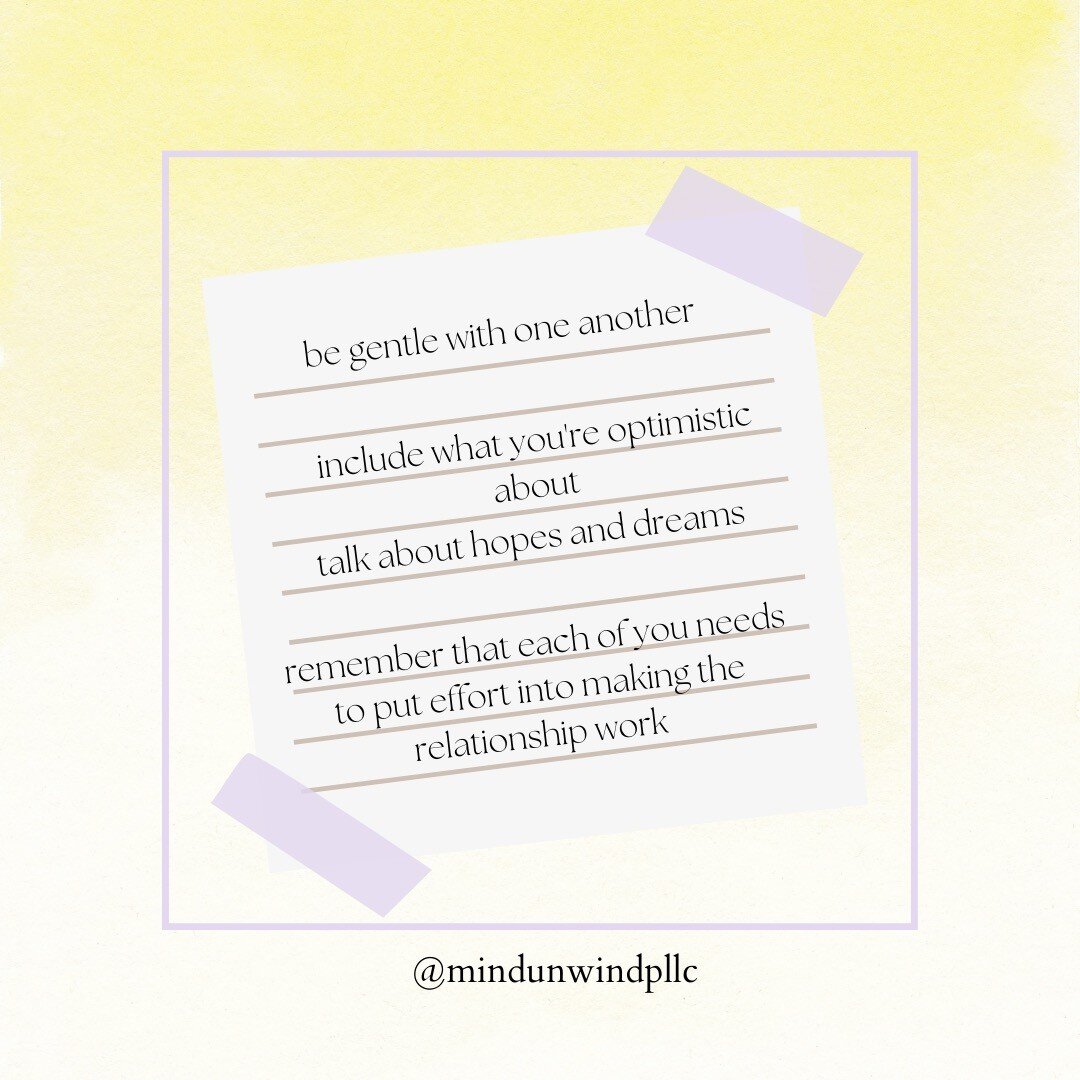 be gentle with one another
include what you're optimistic
about
talk about hopes and dreams
remember that each of you needs
to put effort into making the
relationship work
@mindunwindpllc